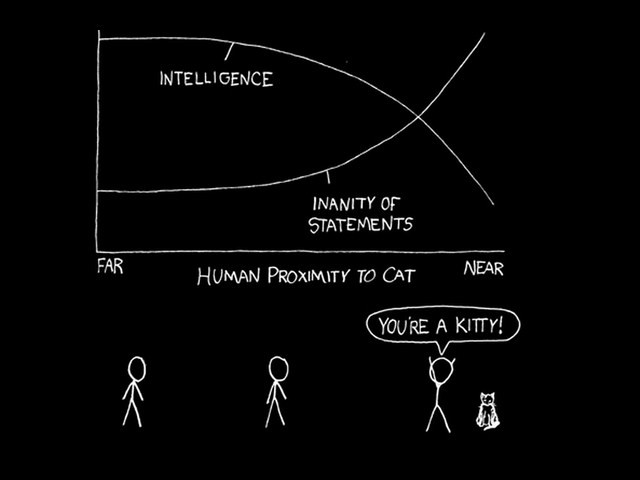 INTELLIGENCE
INANITY OF
STATEMENTS
FAR
HUMAN PROXIMITY TO CAT
NEAR
YOU'RE A KITTY!